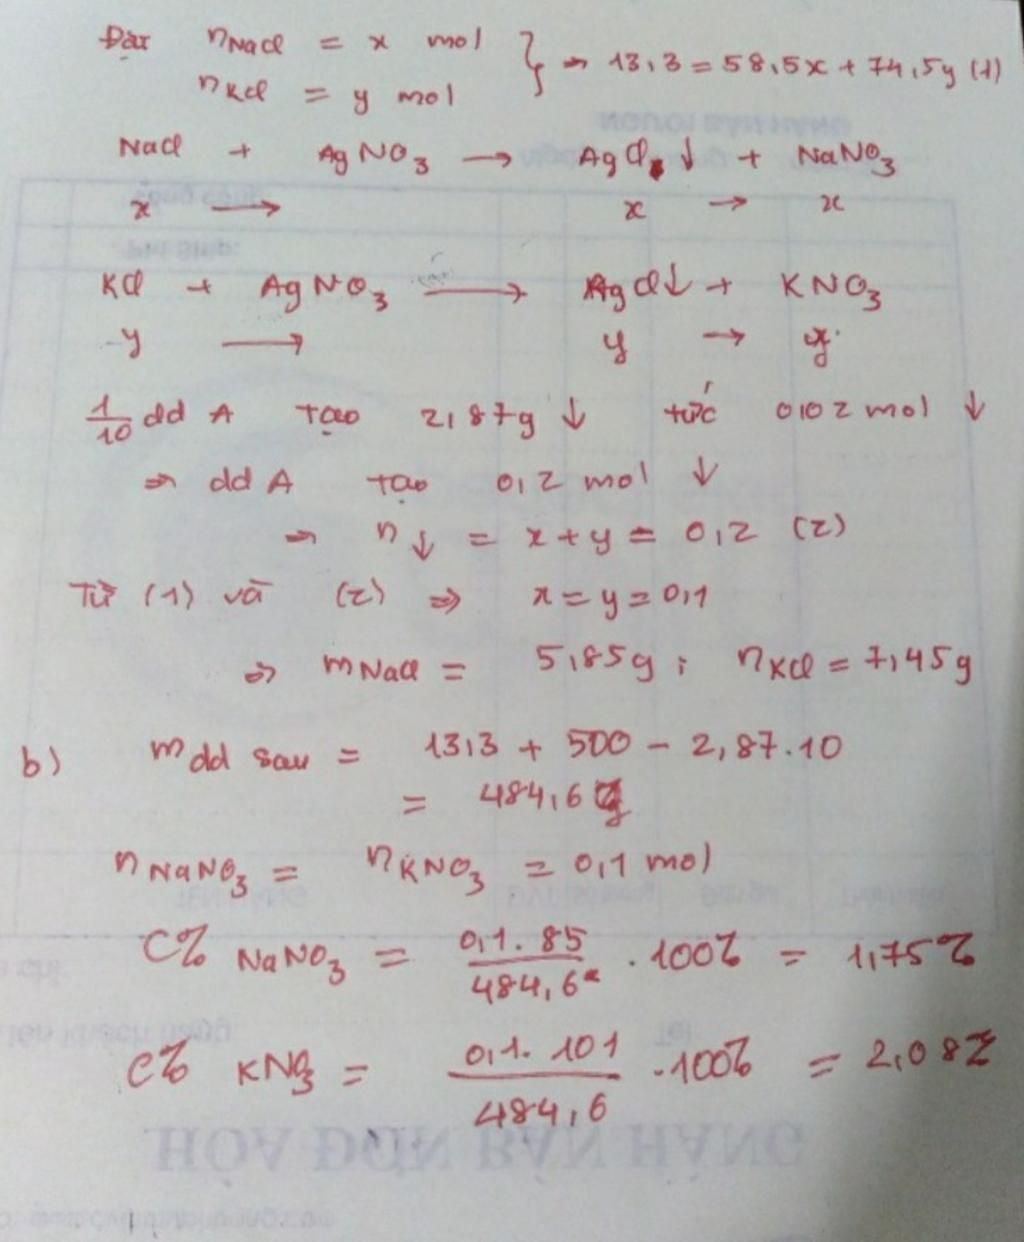 Đặt nNaCl = x mol
nKCl = y mol } ⇒ 13,3 = 58,5x + 74,5y (1)
NaCl + AgNO3 → AgCl ↓ + NaNO3
x → x → x
KCl + AgNO3 → AgCl↓ + KNO3
y → y → y
1/10 dd A tạo 2,87g ↓ tức 0,02 mol ↓
⇒ dd A tạo 0,2 mol ↓
⇒ n↓ = x + y = 0,2 (2)
Từ (1) và (2) ⇒ x = y = 0,1
⇒ mNaCl = 5,85g ; nKCl = 7,45g
b) mdd sau = 13,3 + 500 - 2,87.10
= 484,6g
nNaNO3 = nKNO3 = 0,1 mol
C% NaNO3 = 0,1.85/484,6 . 100% = 1,75%
C% KNO3 = 0,1.101/484,6 .100% = 2,08%
HÓA ĐƠN BÁN HÀNG